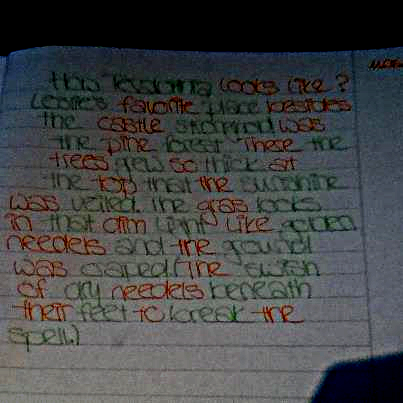 How looks like ?
Leslie's favorite place besides
the castle was
the pine forest These the
trees grew so thick at
the top that the sunshine
was veiled. The gras looks
in that dim light like golden
needels and the ground
was (The swish
of dry needels beneath
their feet to break the
spell.)